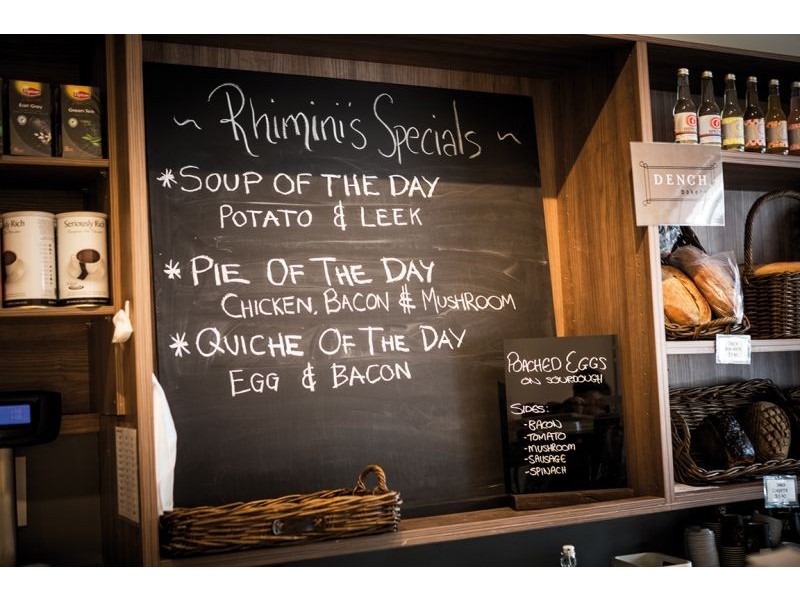 ~ Rhimini's Specials ~
*SOUP OF THE DAY
POTATO & LEEK
* PIE OF THE DAY
CHICKEN, BACON & MUSHROOM
* QUICHE OF THE DAY
EGG & BACON
POACHED EGGS
ON SOURDOUGH
SIDES:
-BACON
-TOMATO
-MUSHROOM
-SAUSAGE
-SPINACH
DENCH
Lipton
Earl Grey
Lipton
Green Tea
Seriously Rich